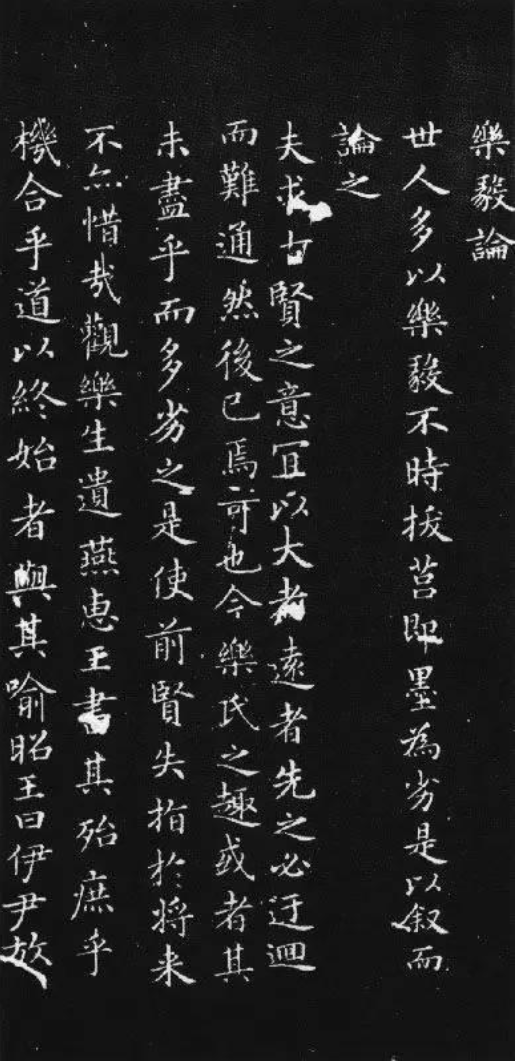 樂毅論
世人多以樂毅不時拔莒即墨為劣是以叙而
論之
夫求古賢之意冝以大者遠者先之必迂迴
而難通然後已焉可也今樂氏之趣或者其
未盡乎而多劣之是使前賢失指於将来
不亦惜哉觀樂生遺燕惠王書其殆庶乎
機合乎道以終始者與其喻昭王曰伊尹放